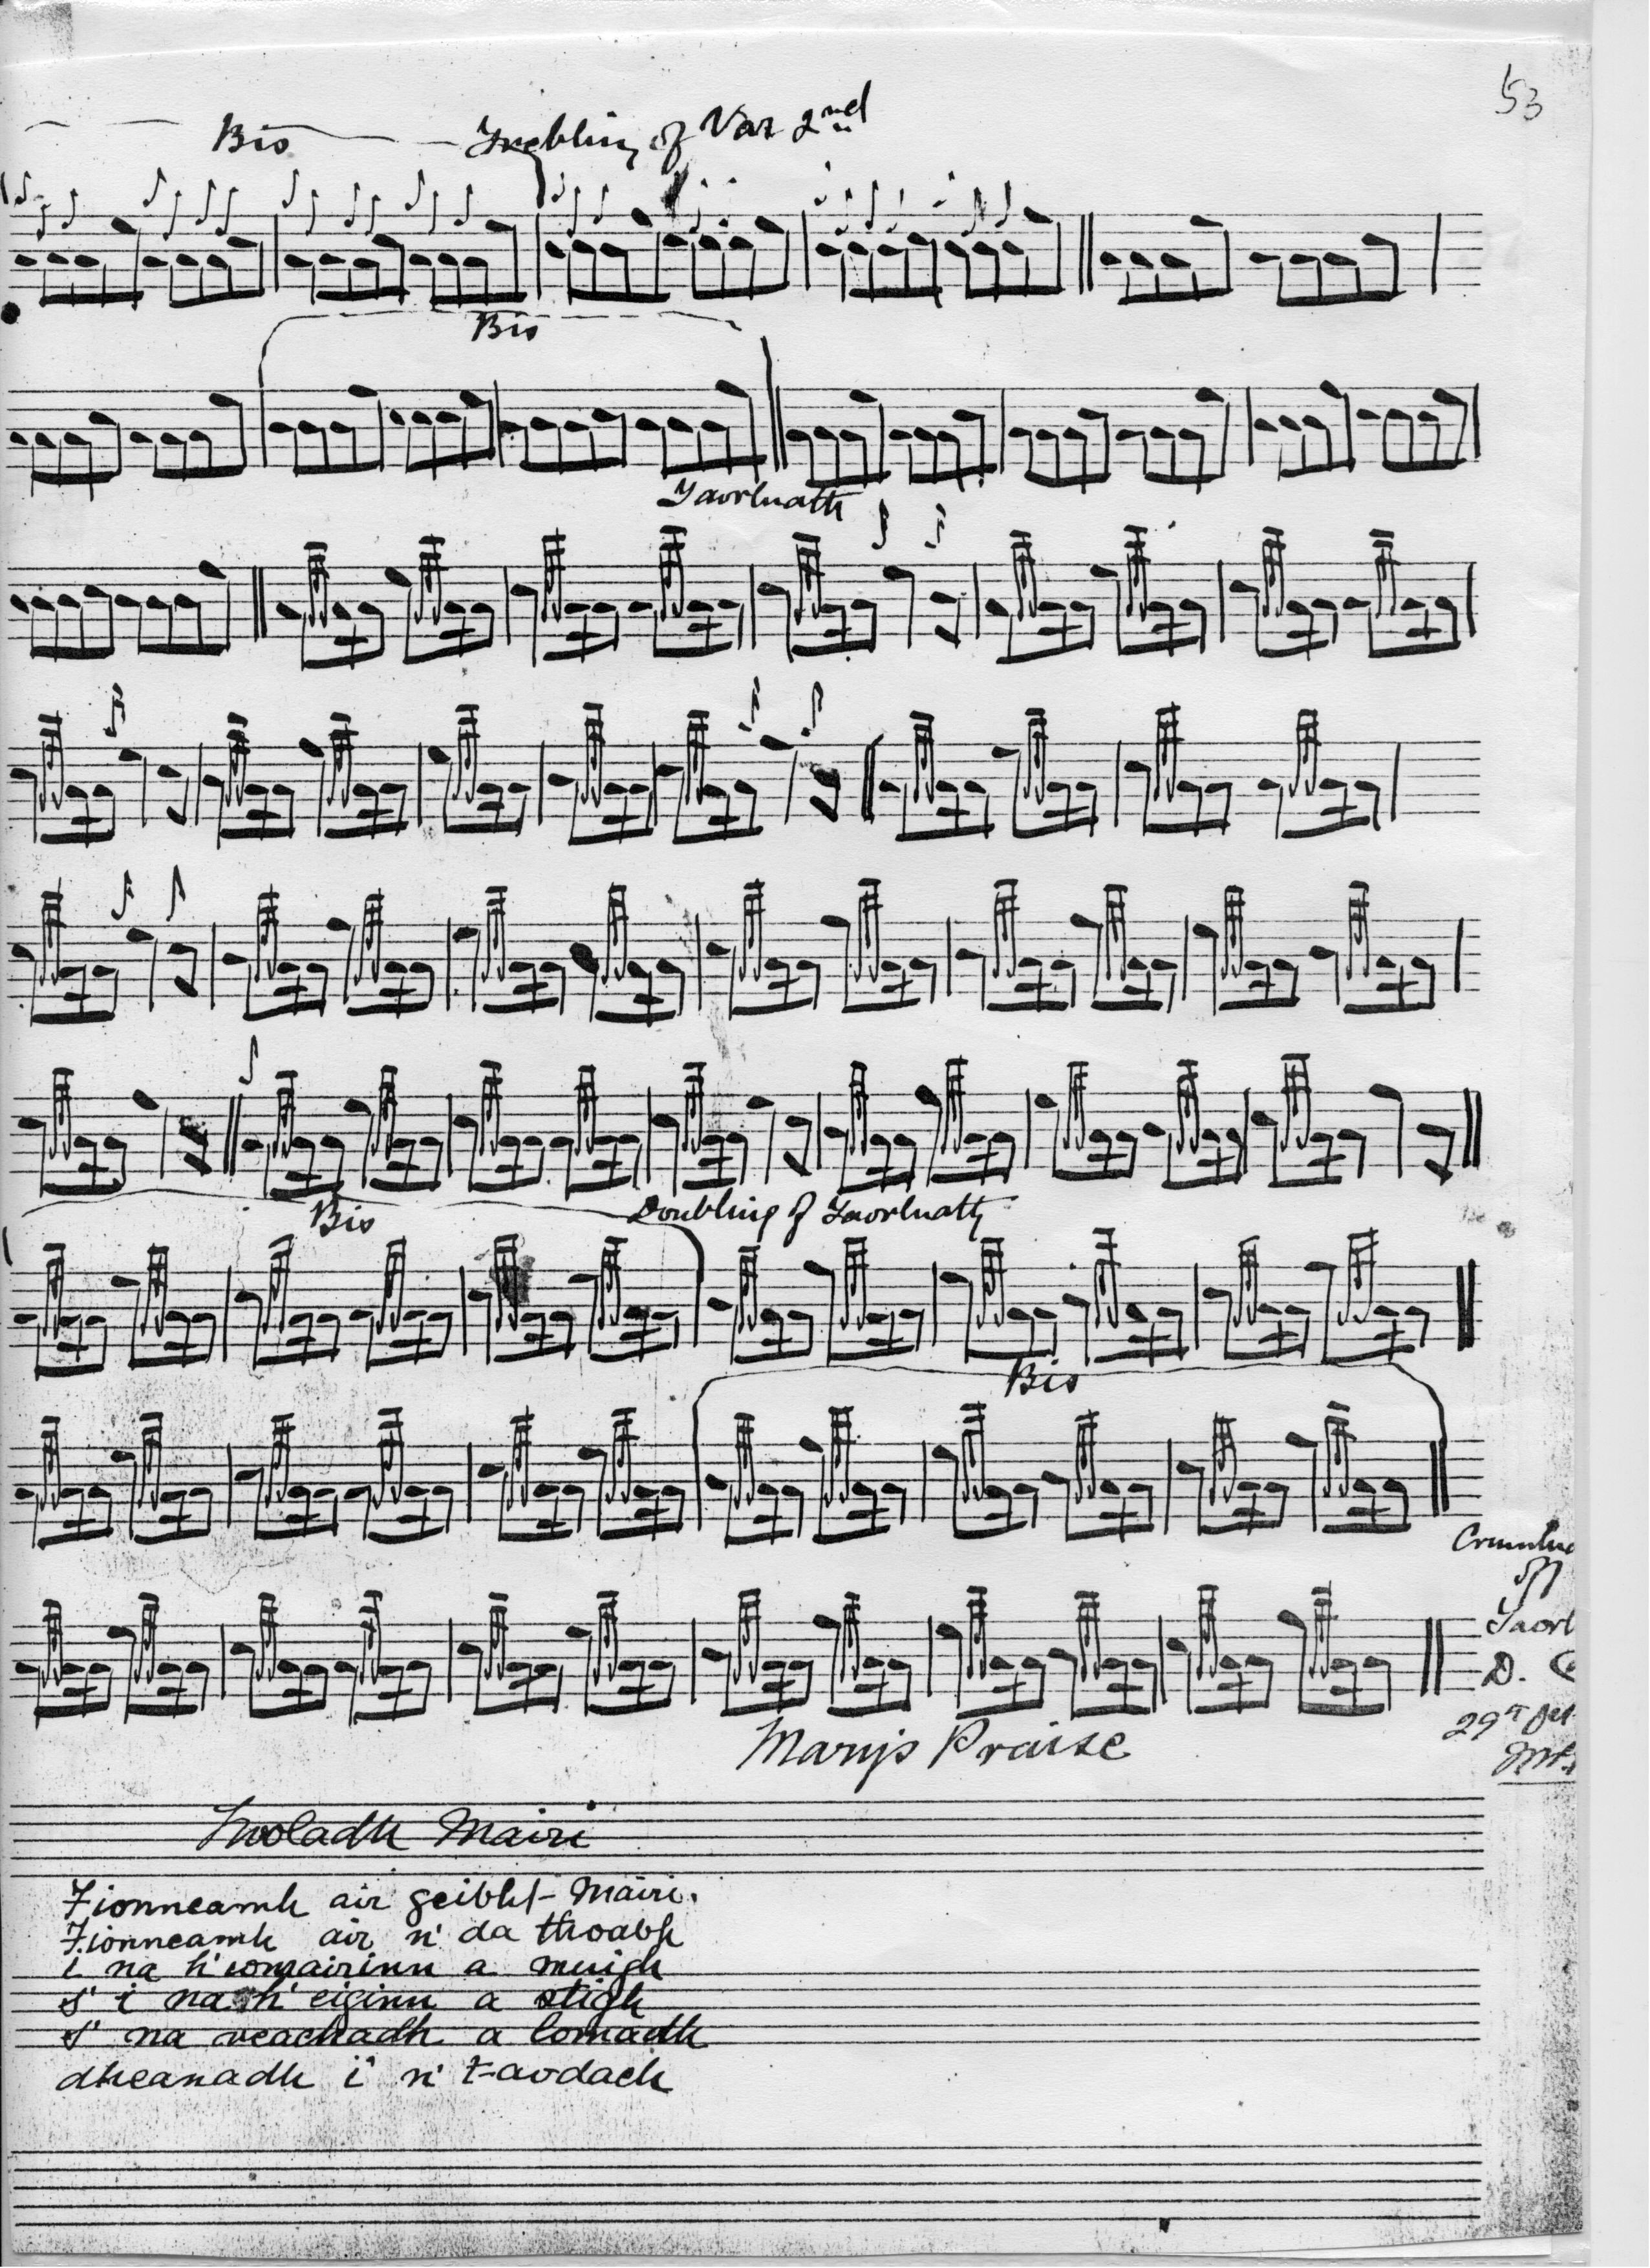 53
Bis Trebling of Var 2nd
Bis
Taorluath
Bis Doubling of Taorluath
Bis
Taorl
D.
29th
Marys Praise
Mairi
Fionneamh air geibht- Mairi.
Fionneamh air n' da thoabh
i na h' iomairinn a muigh
s' i na h' eiginn a stigh
s' na veachadh a lomadh
dheanadh i n' t-aodach